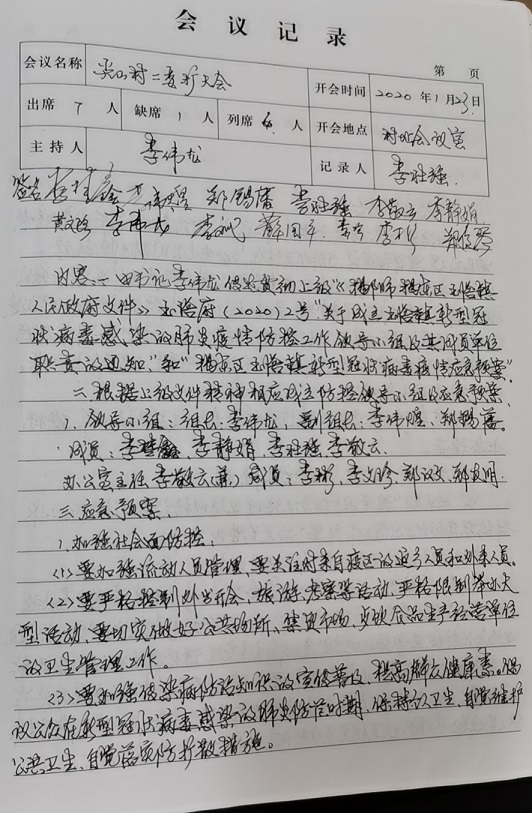 会议记录
第 页
会议名称 村二委扩大会 开会时间 2020年1月23日
出席 7 人 缺席 1 人 列席 人 开会地点 村 会议室
主持人 李伟龙 记录人 李壮强
签名 李壮强 李敬云 李静娟
李伟龙
内容:一、由书记李伟龙传达贯彻上级《揭阳市揭东区玉滘镇
人民政府文件》玉滘府(2020)2号"关于成立玉滘镇新型冠
状病毒感染的肺炎疫情防控工作领导小组及其成员单位
职责的通知"和"揭东区玉滘镇新型冠状病毒疫情应急预案"
二、根据上级文件精神相应成立防控领导小组及应急预案。
1、领导小组:组长:李伟龙,副组长:李伟 、郑锡藩。
成员: 李静娟、李壮强、李敬云。
办公室主任李敬云(兼)成员:李彬、李 、郑 、郑 明。
三、应急预案。
1、加强社会面防控。
(1)要加强流动人员管理,要关注对来自疫区的返乡人员和外来人员。
(2)要严格控制外出开会、旅游、考察等活动,严格限制举办大
型活动,要切实做好公共场所、集贸市场、 食品生产经营单位
的卫生管理工作。
(3)要加强传染病防治知识的宣传普及,提高群众健康素。倡
议公众在新型冠状病毒感染的肺炎防治时期,保持个人卫生,自觉维护
公共卫生,自觉落实防扩散措施。